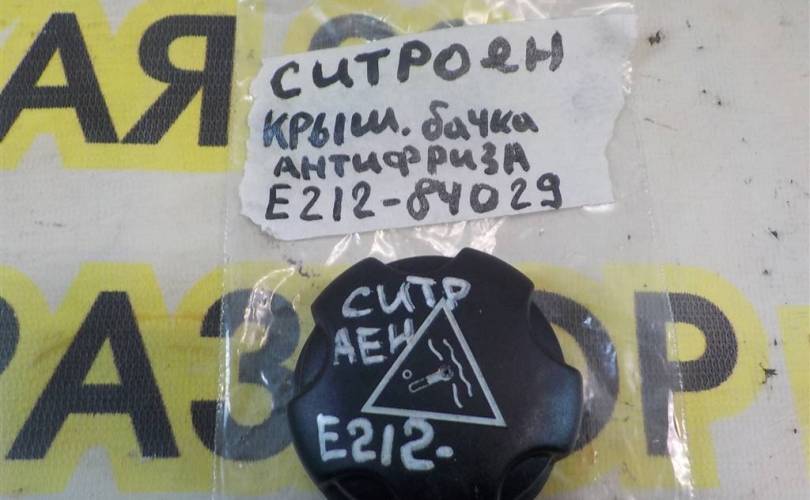 АЯ
СИТРОеН
КРЫШ. бачка
АНТИФРИЗА
Е212-84029
РАЗ ОР
СИТР
АЕН
Е212-